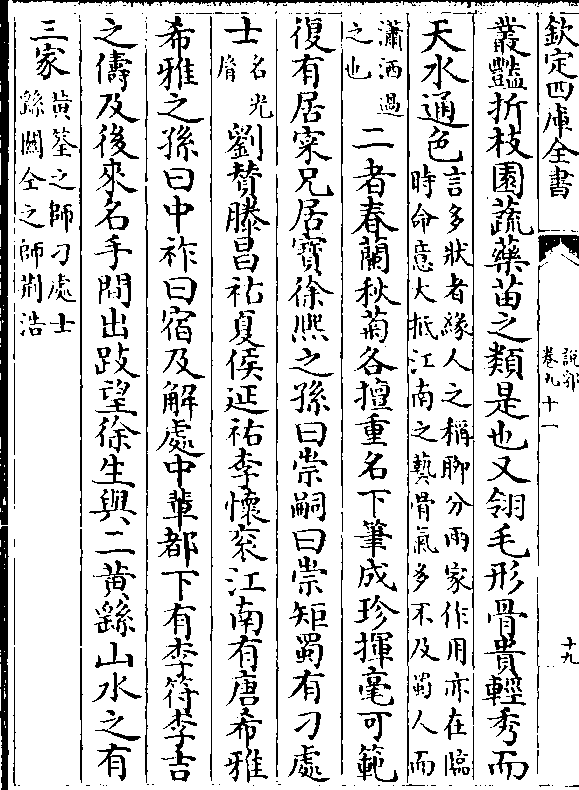 欽定四庫全書
說郛
卷九十一
十九
叢豔折枝園蔬藥苗之類是也又翎毛形骨貴輕秀而
天水通色言多狀者緣人之稱聊分兩家作用亦在臨
時命意大抵江南之藝骨氣多不及蜀人而
瀟洒過
之也二者春蘭秋菊各擅重名下筆成珍揮毫可範
復有居寀兄居寶徐熙之孫曰崇嗣曰崇矩蜀有刁處
士名光
㣧劉贊滕昌祐夏侯延祐李懷衮江南有唐希雅
希雅之孫曰中祚曰宿及解處中輩都下有李符李吉
之儔及後來名手間出跂望徐生與二黃繇山水之有
三家黃筌之師刁處士
繇關仝之師荆浩